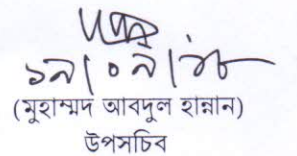 ১৯/০৯/১৮
(মুহাম্মদ আবদুল হান্নান)
উপসচিব